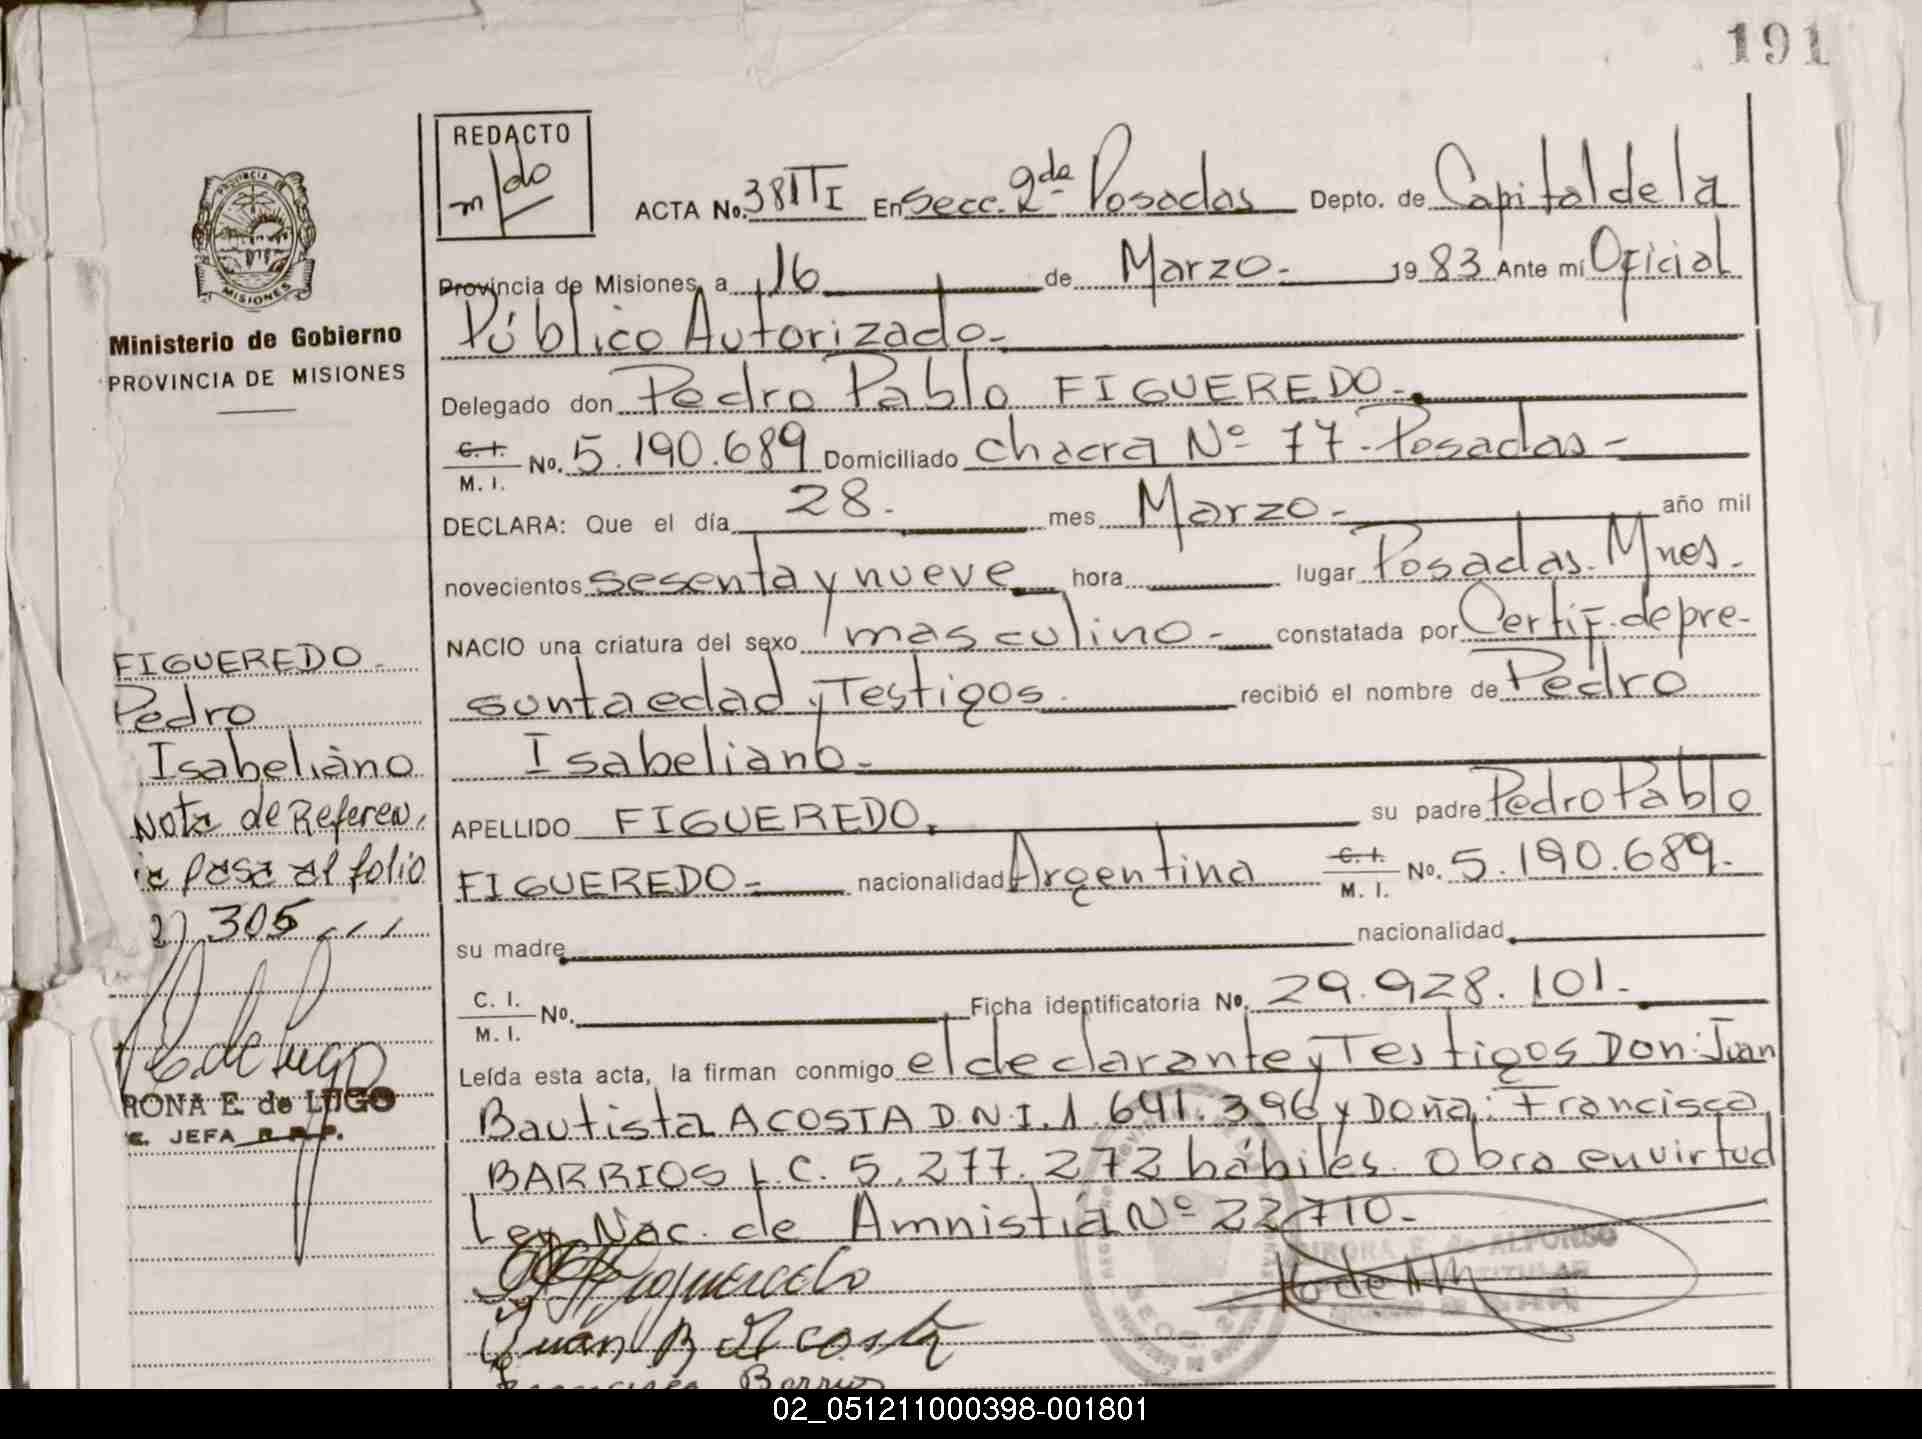 191
REDACTO
m/do
ACTA No. 381 TI En Secc. 2da Posadas Depto. de Capital de la
Provincia de Misiones, a 16 de Marzo.- 1983 Ante mí Oficial
Público Autorizado.-
Delegado don Pedro Pablo FIGUEREDO.-
C. I. / M. I. No. 5.190.689 Domiciliado chacra Nº 77-Posadas-
DECLARA: Que el día 28.- mes Marzo.- año mil
novecientos sesenta y nueve hora lugar Posadas. Mnes.-
NACIO una criatura del sexo masculino.- constatada por Certif. de pre-
sunta edad y Testigos. recibió el nombre de Pedro
Isabeliano.-
APELLIDO FIGUEREDO. su padre Pedro Pablo
FIGUEREDO.- nacionalidad Argentina C. I. / M. I. No. 5.190.689.-
su madre nacionalidad
C. I. / M. I. No. Ficha identificatoria No. 29.928.101.-
Leída esta acta, la firman conmigo el declarante y Testigos Don: Juan
Bautista ACOSTA D.N.I. 1.641.396 y Doña: Francisca
BARRIOS L.C. 5.277.272 hábiles. Obra en virtud
Ley Nac. de Amnistía Nº 22710.-
Figueredo
Juan B Acosta
Francisca Barrios
E. de ALFONSO
TITULAR
PROVINCIA DE
MISIONES
Ministerio de Gobierno
PROVINCIA DE MISIONES
FIGUEREDO.-
Pedro
Isabeliano
Nota de Referen,
ia pasa al folio
305
de Lugo
RONA E. de LUGO
JEFA R.R.P.
02_051211000398-001801